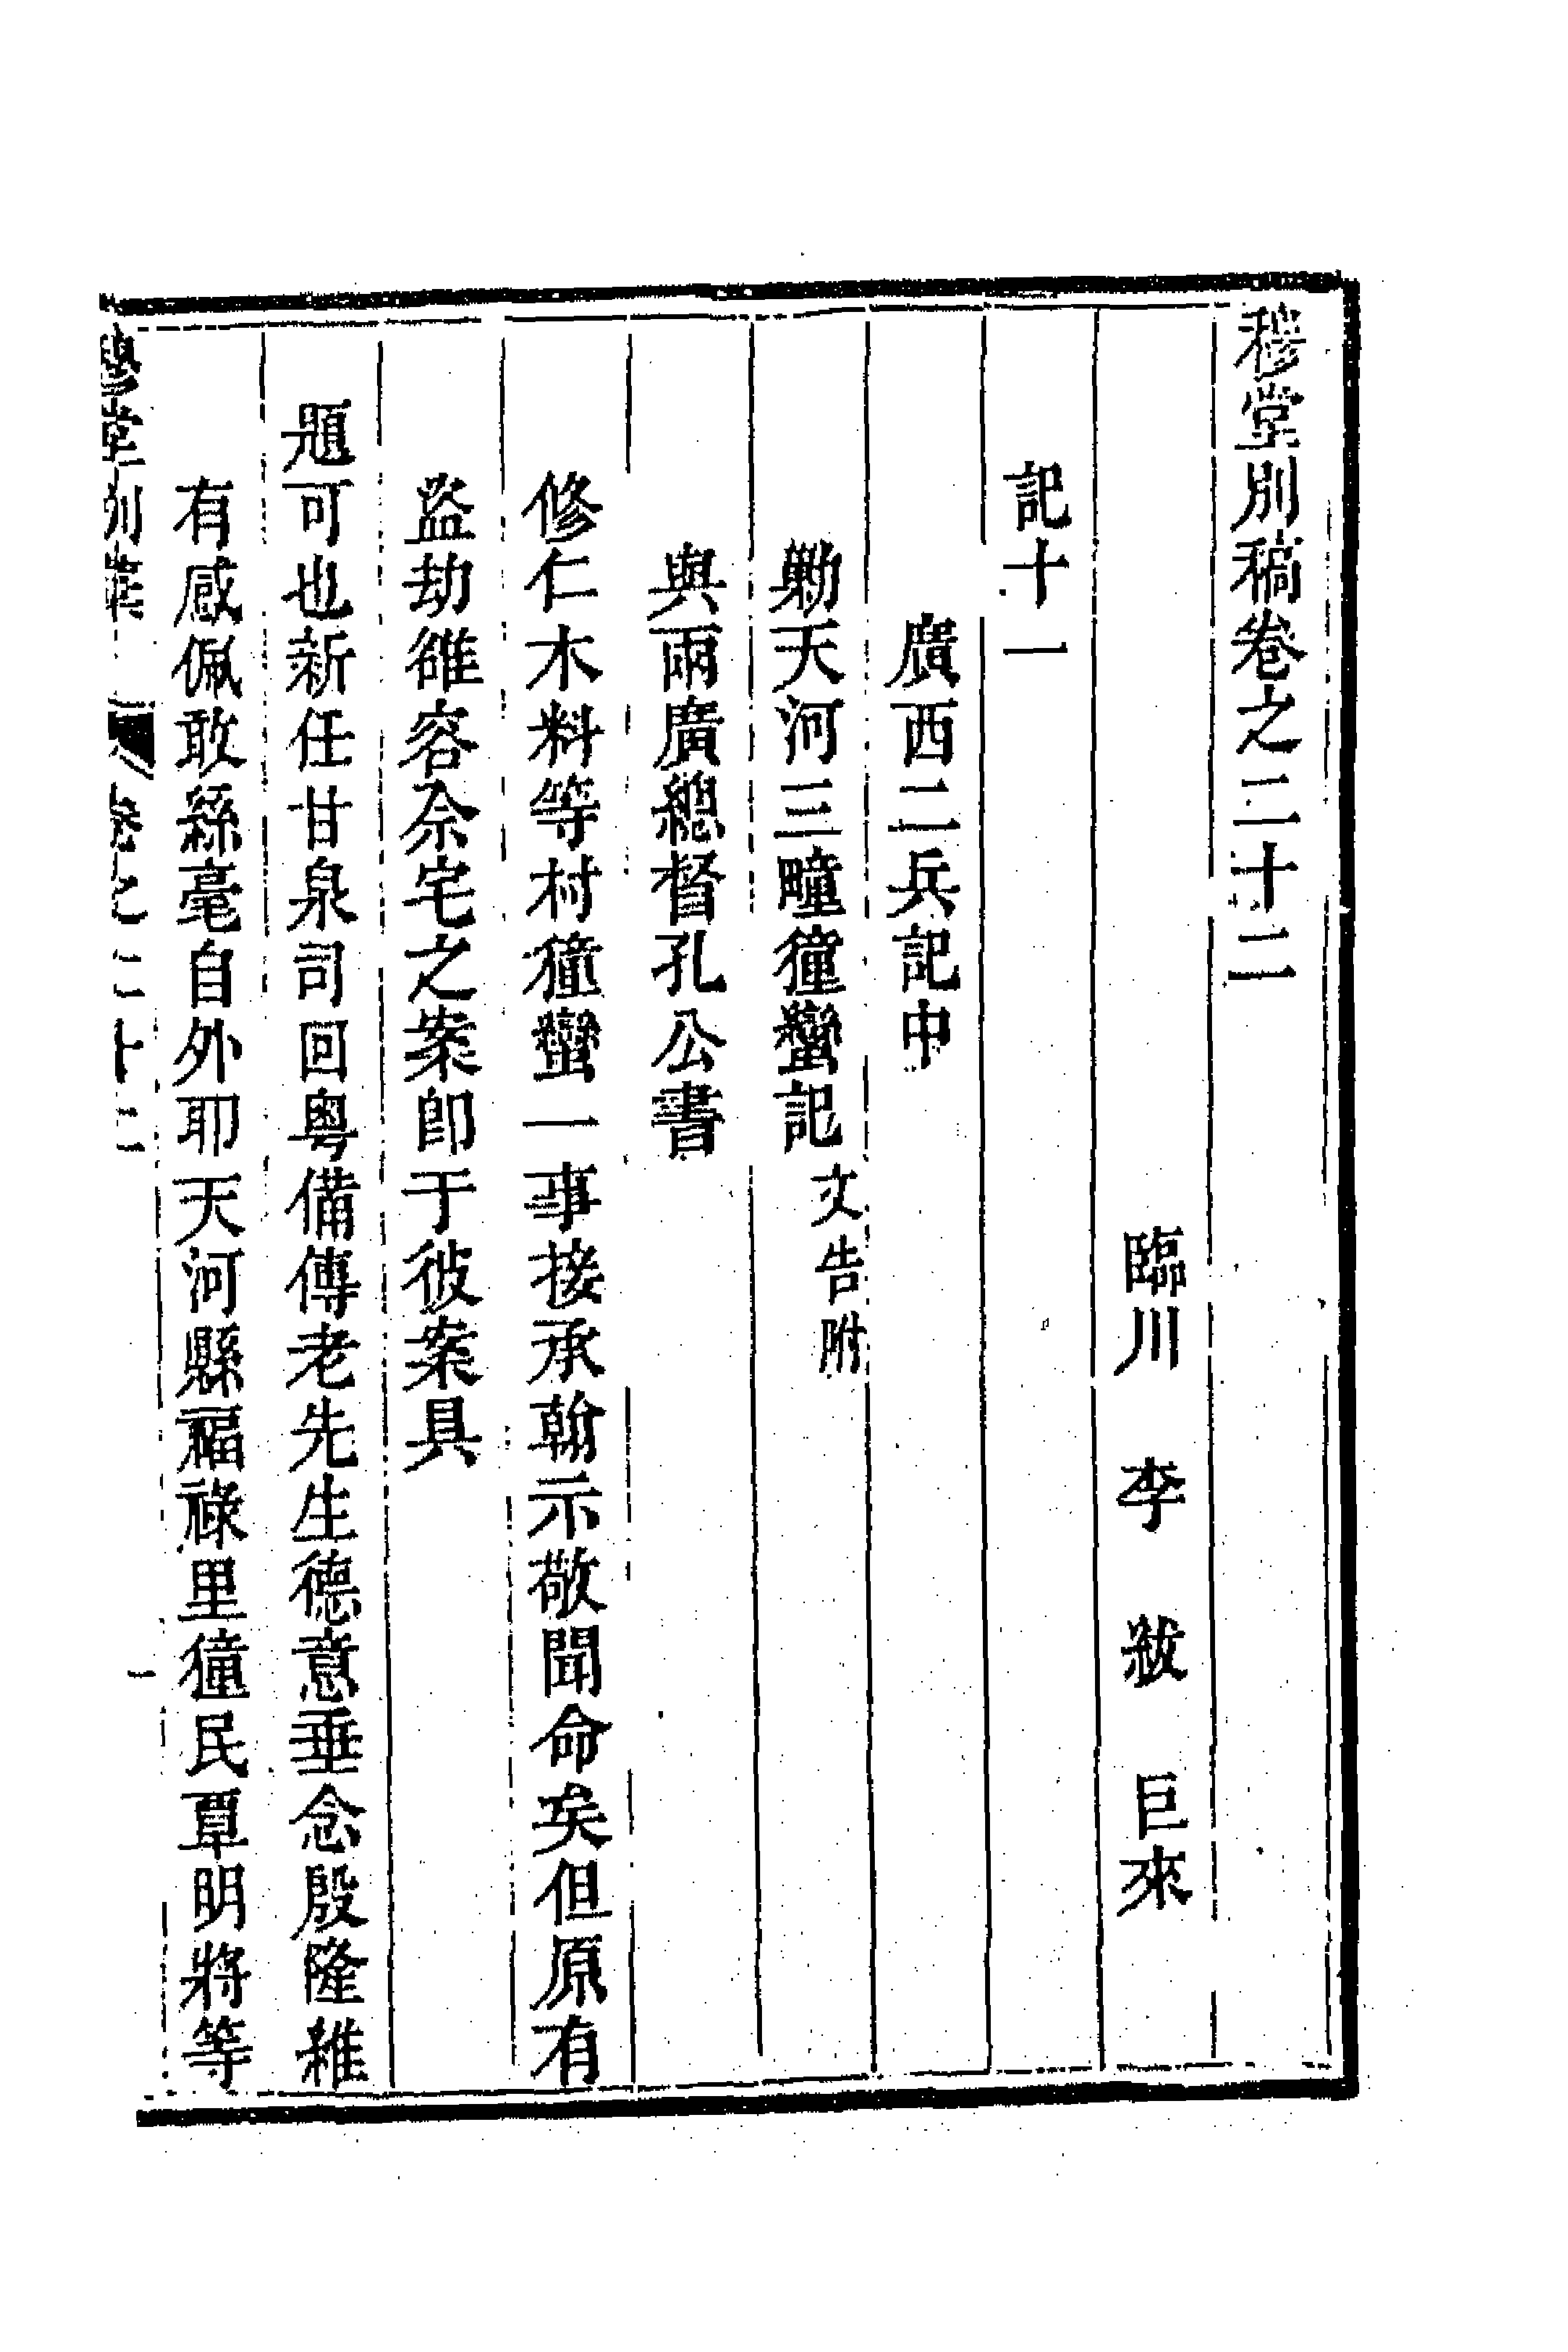 穆堂別稿卷之二十二
臨川 李 紱 巨來
記十一
廣西二兵記中
勦天河三疃獞蠻記 文告附
與兩廣總督孔公書
修仁木料等村獞蠻一事接承翰示敬聞命矣但原有
盜劫雒容佘宅之案卽于彼案具
題可也新任甘泉司回粵備傳老先生德意垂念殷隆雒
有感佩敢絲毫自外耶天河縣福祿里獞民覃明將等
穆堂別稾 卷之二十二 一